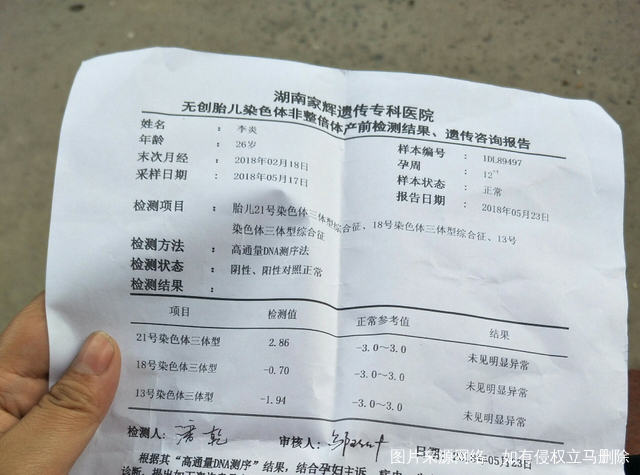 湖南家辉遗传专科医院
无创胎儿染色体非整倍体产前检测结果、遗传咨询报告
姓名 : 李炎 样本编号 : 1DL89497
年龄 : 26岁 孕周 : 12
末次月经 : 2018年02月18日 样本状态 : 正常
采样日期 : 2018年05月17日 报告日期 : 2018年05月23日
检测项目 : 胎儿21号染色体三体型综合征、18号染色体三体型综合征、13号
染色体三体型综合征
检测方法 : 高通量DNA测序法
检测状态 : 阴性、阳性对照正常
检测结果 :
项目 检测值 正常参考值 结果
21号染色体三体型 2.86 -3.0~3.0 未见明显异常
18号染色体三体型 -0.70 -3.0~3.0 未见明显异常
13号染色体三体型 -1.94 -3.0~3.0 未见明显异常
检测人: 审核人: 05月23日
根据其“高通量DNA测序”结果,结合孕妇主诉、
图片来源网络,如有侵权立马删除